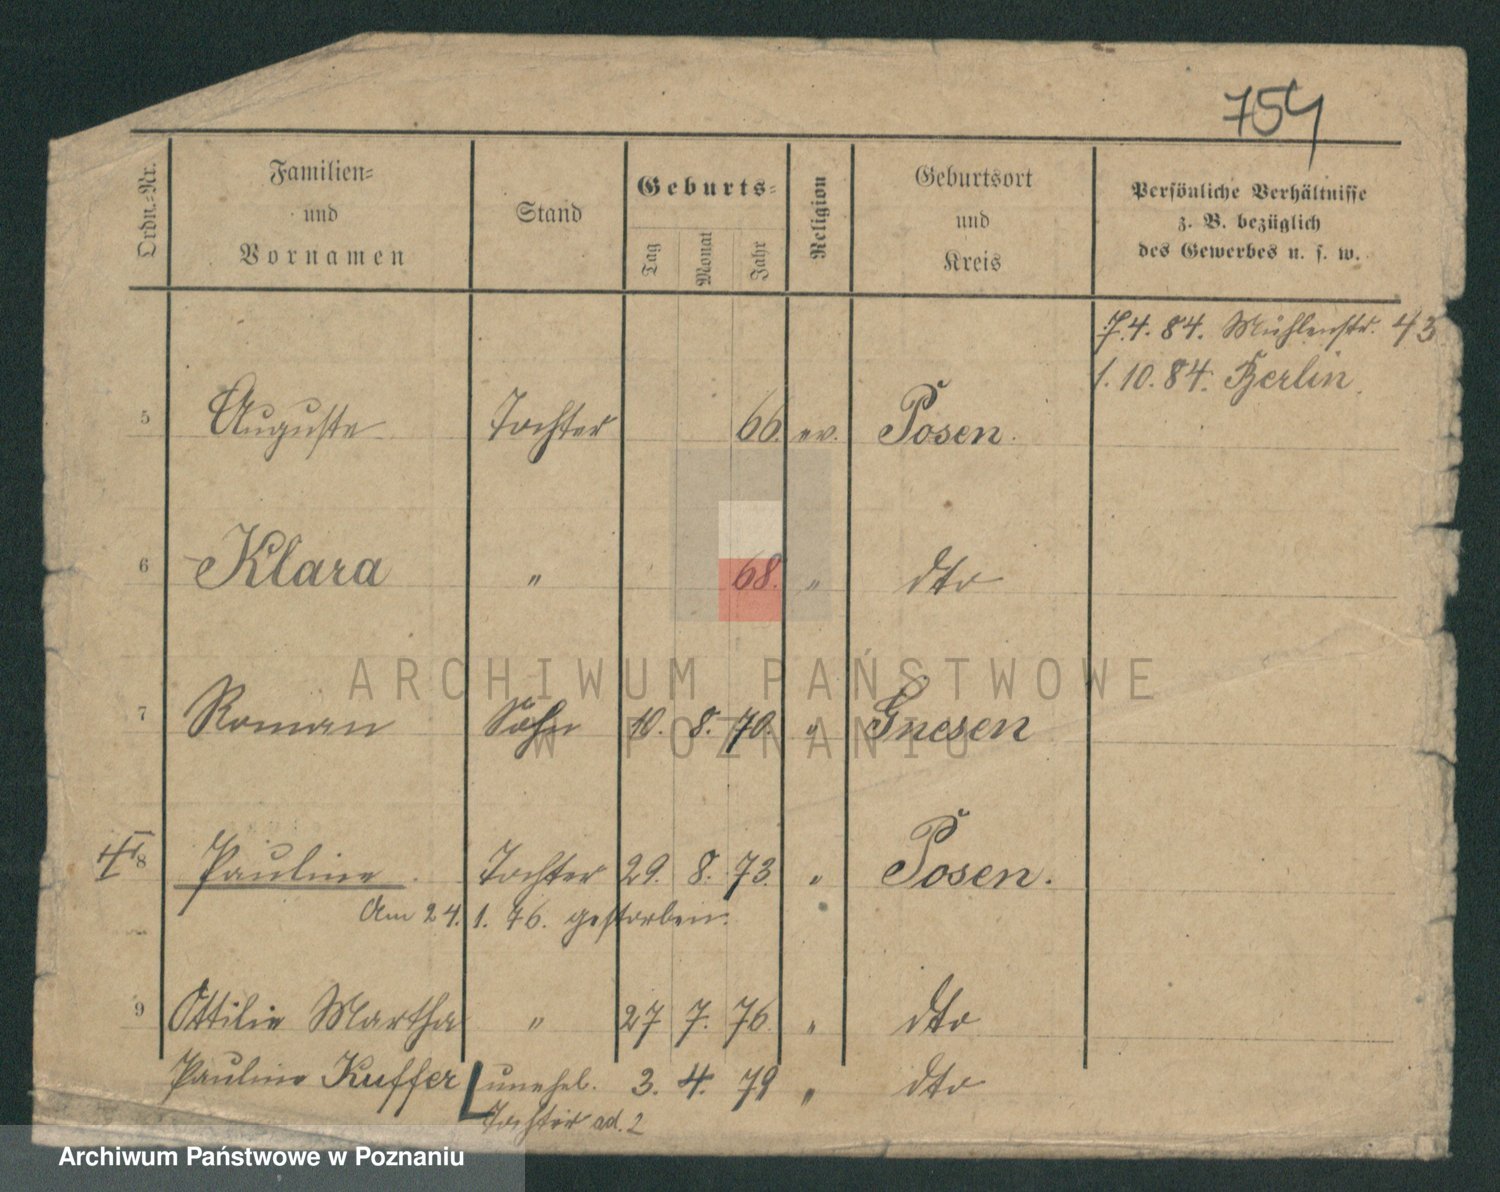 754
Ordn.-Nr.
Familien-
und
Vornamen
Stand
Geburts-
Tag
Monat
Jahr
Religion
Geburtsort
und
Kreis
Persönliche Verhältnisse
z. B. bezüglich
des Gewerbes u. s. w.
7.4.84. Mühlenstr. 43
1.10.84. Berlin.
5 Auguste Tochter 66. ev. Posen.
6 Klara " 68. " dto
7 Roman Sohn 10. 8. 70. " Gnesen
8 Pauline. Tochter 29. 8. 73. " Posen.
Am 24. 1. 76. gestorben.
9 Ottilie Martha " 27 7. 76. " dto
Pauline Kuffer unehel. 3. 4. 79 " dto
Tochter ad. 2
ARCHIWUM PAŃSTWOWE
W POZNANIU
Archiwum Państwowe w Poznaniu